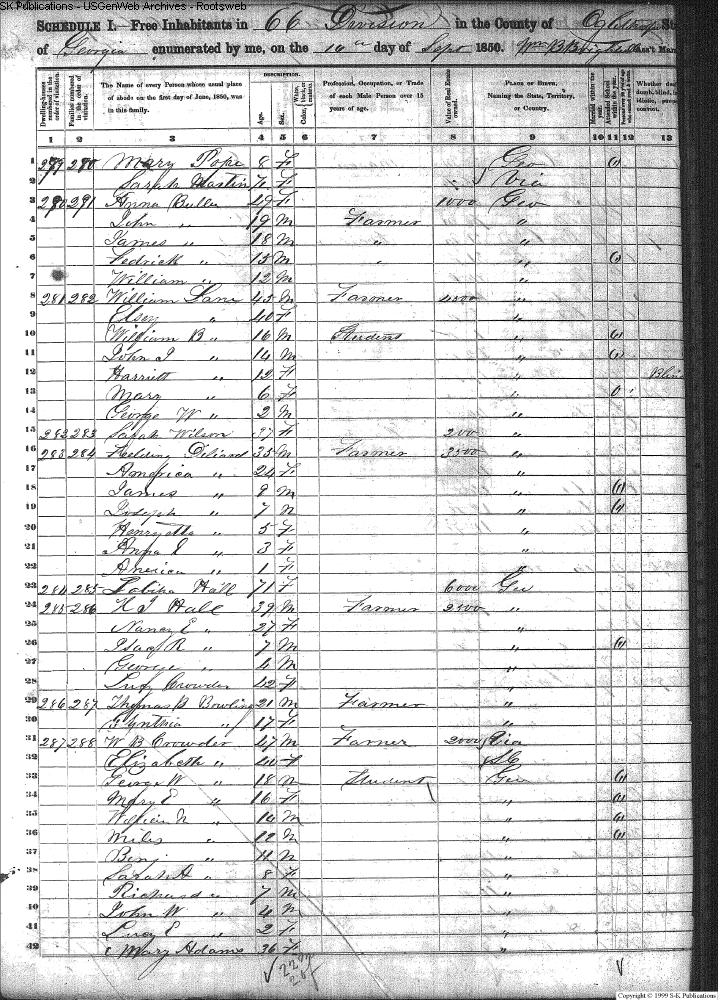 SK Publications - USGenWeb Archives - Rootsweb
SCHEDULE I.—Free Inhabitants in 66 Division in the County of State
of Georgia enumerated by me, on the day of Sept 1850. Ass't Mar
Dwelling-houses numbered in the order of visitation.
Families numbered in the order of visitation.
The Name of every Person whose usual place of abode on the first day of June, 1850, was in this family.
DESCRIPTION.
Age.
Sex.
Color, White, black, or mulatto.
Profession, Occupation, or Trade of each Male Person over 15 years of age.
Value of Real Estate owned.
PLACE OF BIRTH. Naming the State, Territory, or Country.
Married within the year.
Attended School within the year.
Whether deaf dumb, blind, idiotic, convict.
1 2 3 4 5 6 7 8 9 10 11 12 13
1 279 280 Mary Pope 8 F Geo (1)
2 Sarah Martin F Via
3 290 291 Anna Butler 49 F 1000 Geo
4 John " 19 M Farmer "
5 James " 18 M " "
6 " 15 M " " (1)
7 William " 12 M "
8 281 282 William Lane 45 M Farmer "
9 " 40 F "
10 William B " 16 M Student " (1)
11 John J " 14 M " (1)
12 Harriett " 12 F " Blin
13 Mary " 6 F "
14 George W " 2 M "
15 282 283 Sarah Wilson F 200 "
16 283 284 35 M Farmer 3500 "
17 America " 24 F "
18 James " 9 M " (1)
19 Joseph " 7 M " (1)
20 Henryetta " 5 F "
21 Anna E " 3 F "
22 America " 1 F "
23 284 285 Hall 71 F 6000 Geo
24 285 286 Hall 39 M Farmer 2500 "
25 Nancy E " 27 F "
26 Isaa R " 7 M " (1)
27 George " 4 M "
28 Lucy Crowder 42 F "
29 286 287 Thomas B Bowling 21 M Farmer "
30 Cynthia " 17 F "
31 287 288 W B Crowder 47 M Farmer 2000 Via
32 Elizabeth " 40 F SC
33 George W " 18 M Student Geo (1)
34 Mary E " 16 F " (1)
35 William N " 14 M " (1)
36 Miles " 12 M " (1)
37 Benj " 11 M "
38 Sarah A " 8 F "
39 Richard " 7 M "
40 John W " 4 M "
41 Lucy E " 2 F "
42 Mary Adams 36 F "
Copyright © 1999 S-K Publications